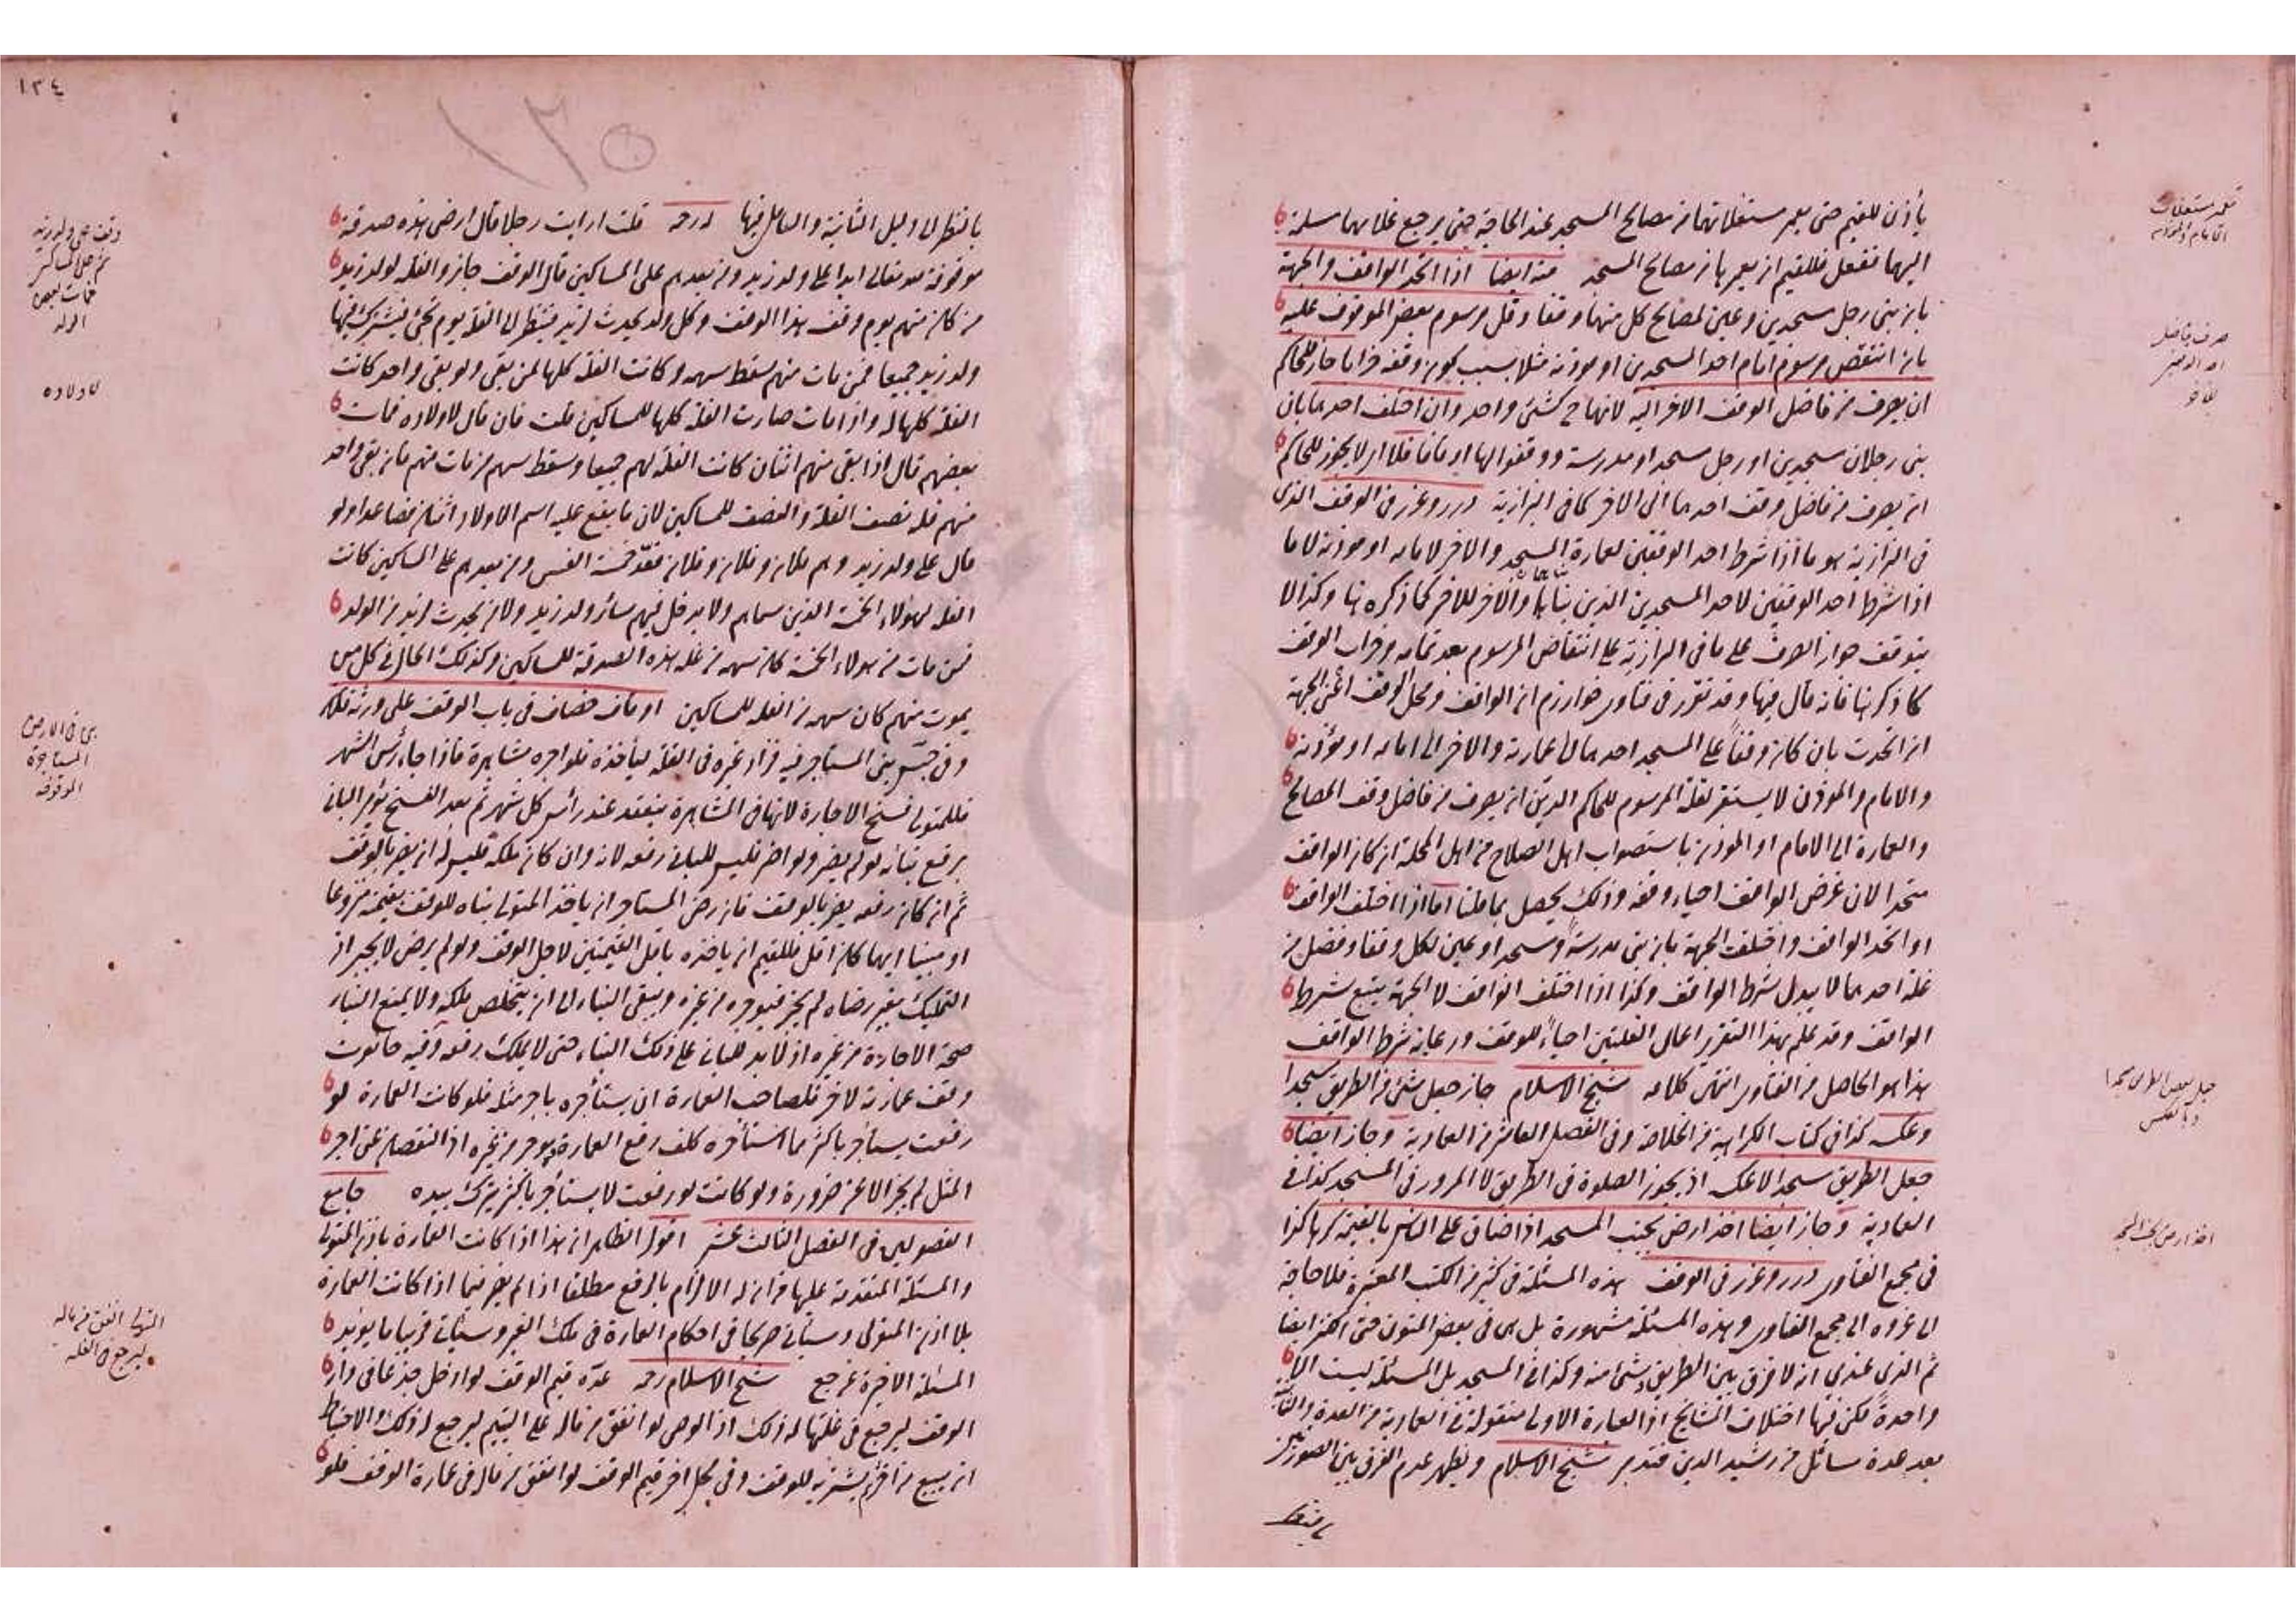 يأذن للقيم حتى يعمر مستغلاتهما من مصالح المسجد عند الحاجة حتى يرجع غلاتهما مسلمة
اليها ففعل فللقيم ان يعمرها من مصالح المسجد منه ايضا اذا اتحد الواقف والجهة
بان بنى رجل مسجدين وعين لمصالح كل منهما وقفا وقل مرسوم بعض الموقوف عليه
بان انتقص مرسوم امام احد المسجدين او موذنه مثلا بسبب كون وقفه خرابا جاز للحاكم
ان يصرف من فاضل الوقف الاخر اليه لانهما ح كشئ واحد وان اختلف احدهما بان
بنى رجلان مسجدين او رجل مسجدا ومدرسة ووقفوا لها اوقافا فلا اى لا يجوز للحاكم
ان يصرف من فاضل وقف احدهما الى الاخر كما فى البزازية درر وغرر فى الوقف الذى
فى البزازية هو ما اذا شرط احد الوقفين لعمارة المسجد والاخر لامامه او موذنه لا ما
اذا شرط احد الوقفين لاحد المسجدين الذين بناهما والاخر للاخر كما ذكره هنا وكذا لا
يتوقف جواز الصرف على ما فى البزازية على انتقاض المرسوم بعد تمامه وخراب الوقف
كما ذكر هنا فانه قال فيها وقد تقرر فى فتاوى خوارزم ان الواقف ومحل الوقف اعنى الجهة
ان اتحدت بان كان وقفا على المسجد احدهما الى عمارته والاخر الى امامه او موذنه
والامام والموذن لا يستقر لقلة المرسوم للحاكم الدين ان يصرف من فاضل وقف المصالح
والعمارة الى الامام او الموذن باستصواب اهل الصلاح من اهل المحلة ان كان الواقف
متحدا لان غرض الواقف احياء وقفه وذلك يحصل بما قلنا اما اذا اختلف الواقف
او اتحد الواقف واختلفت الجهة بان بنى مدرسة ومسجدا وعين لكل وقفا وفضل من
غلة احدهما لا يبدل شرط الواقف وكذا اذا اختلف الواقف لا الجهة يتبع شرط
الواقف وقد علم بهذا التقرير اعمال الغلتين احياء للوقف ورعاية شرط الواقف
هذا هو الحاصل من الفتاوى انتهى كلامه شيخ الاسلام جاز جعل شئ من الطريق مسجدا
وعكسه كذا فى كتاب الكراهية من الخلاصة وفى الفصل العاشر من العمادية وجاز ايضا
جعل الطريق مسجدا لا عكسه اذ يجوز الصلوة فى الطريق لا المرور فى المسجد كذا فى
العمادية وجاز ايضا اخذ ارض بجنب المسجد اذا ضاق على الناس بالقيمة كرها كذا
فى مجمع الفتاوى درر وغرر فى الوقف هذه المسئلة فى كثير من الكتب المعتبرة فلا حاجة
الى عزوه الى مجمع الفتاوى وهذه المسئلة مشهورة بل هى فى بعض المتون حتى الكنز ايضا
ثم الذى عندى انه لا فرق بين الطريق وشئ منه وكذا فى المسجد بل المسئلة ليست الا
واحدة لكن فيها اختلاف المشايخ اذ العبارة الاولى منقولة فى العمادية من العدة والثانية
بعد عدة مسائل من رشيد الدين فتدبر شيخ الاسلام ويظهر عدم الفرق بين الصورتين
صرف فاضل
احد الوقفين
جعل بعض الطريق مسجدا
وبالعكس
اخذ ارض بجنب المسجد
١٣٤
١٣٥
بالنظر الى دليل الثانية والتامل فيها قلت ارايت رجلا قال ارضى هذه صدقة
موقوفة لله تعالى ابدا على ولد زيد ومن بعدهم على المساكين قال الوقف جائز والغلة لولد زيد
من كان منهم يوم وقف هذا الوقف وكل ولد يحدث لزيد فينظر الى الغلة يوم تجئ فيشترك فيها
ولد زيد جميعا فمن مات منهم سقط سهمه وكانت الغلة كلها لمن بقى ولو بقى واحد كانت
الغلة كلها له واذا مات صارت الغلة كلها للمساكين قلت فان قال لاولاده فمات
بعضهم قال اذا بقى منهم اثنان كانت الغلة لهم جميعا وسقط سهم من مات منهم فان بقى واحد
منهم فله نصف الغلة والنصف للمساكين لان ما يقع عليه اسم الاولاد اثنان فصاعدا ولو
قال على ولد زيد وهم فلان وفلان وفلان فعد خمسة انفس ومن بعدهم على المساكين كانت
الغلة لهولاء الخمسة الذين سماهم ولا يدخل فيهم سائر ولد زيد ولا من يحدث لزيد من الولد
فمن مات من هولاء الخمسة كان سهمه من غلة هذه الصدقة للمساكين وكذلك الحال فى كل من
يموت منهم كان سهمه من الغلة للمساكين اوقاف خصاف فى باب الوقف على ورثة فلان
بنى المستاجر فيه فزاد غيره فى الغلة ليأخذه فلو اجره مشاهرة فاذا جاء رأس الشهر
فللمتولى فسخ الاجارة لانها فى المشاهرة ينعقد عند رأس كل شهر ثم بعد الفسخ يؤمر البانى
برفع بنائه لو لم يضر ولو اضر فليس للبانى رفعه لانه وان كان ملكه فليس له ان يضر بالوقف
ثم ان كان رفعه يضر بالوقف فان رضى المستاجر ان ياخذ المتولى بناه للوقف بقيمته منزوعا
او مبنيا ايهما كان اقل فللقيم ان ياخذه باقل القيمتين لاجل الوقف ولو لم يرض لا يجبر اذ
التمليك بغير رضاه لم يجز فيوجره من غيره ويبقى البناء الى ان يتخلص ملكه ولا يمنع البناء
صحة الاجارة من غيره اذ لا يد للبانى على ذلك البناء حتى لا يملك رفعه وفيه حانوت
وقف عمارته لاخر فلصاحب العمارة ان يستأجره باجر مثله فلو كانت العمارة لو
رفعت يستأجر باكثر مما استأجره كلف رفع العمارة ويوجر من غيره اذ النقصان عن اجر
المثل لم يجز الا عن ضرورة ولو كانت لو رفعت لا يستأجر باكثر يترك بيده جامع
الفصولين فى الفصل الثالث عشر اقول الظاهر ان هذا اذا كانت العمارة باذن المتولى
والمسئلة المتقدمة عليها فى ان له الالزام بالرفع مطلقا اذا لم يضر فيما اذا كانت العمارة
بلا اذن المتولى وسيأتى صريحا فى احكام العمارة فى ملك الغير وسيأتى قريبا ما يؤيد
المسئلة الاخيرة شيخ الاسلام رحمه عدة قيم الوقف لو ادخل جذعا فى دار
الوقف ليرجع فى غلتها له ذلك اذ الوصى لو انفق من ماله على اليتيم ليرجع له ذلك والاحتياط
ان يبيع من اخر ثم يشتريه للوقف وفى محل اخر قيم الوقف لو انفق من ماله فى عمارة الوقف فلو
وقف على ولد زيد
ثم على المساكين
فمات بعض
الولد
لاولاده
بنى فى الارض
المستاجرة
الموقوفة
المتولى انفق من ماله
ليرجع فى الغلة